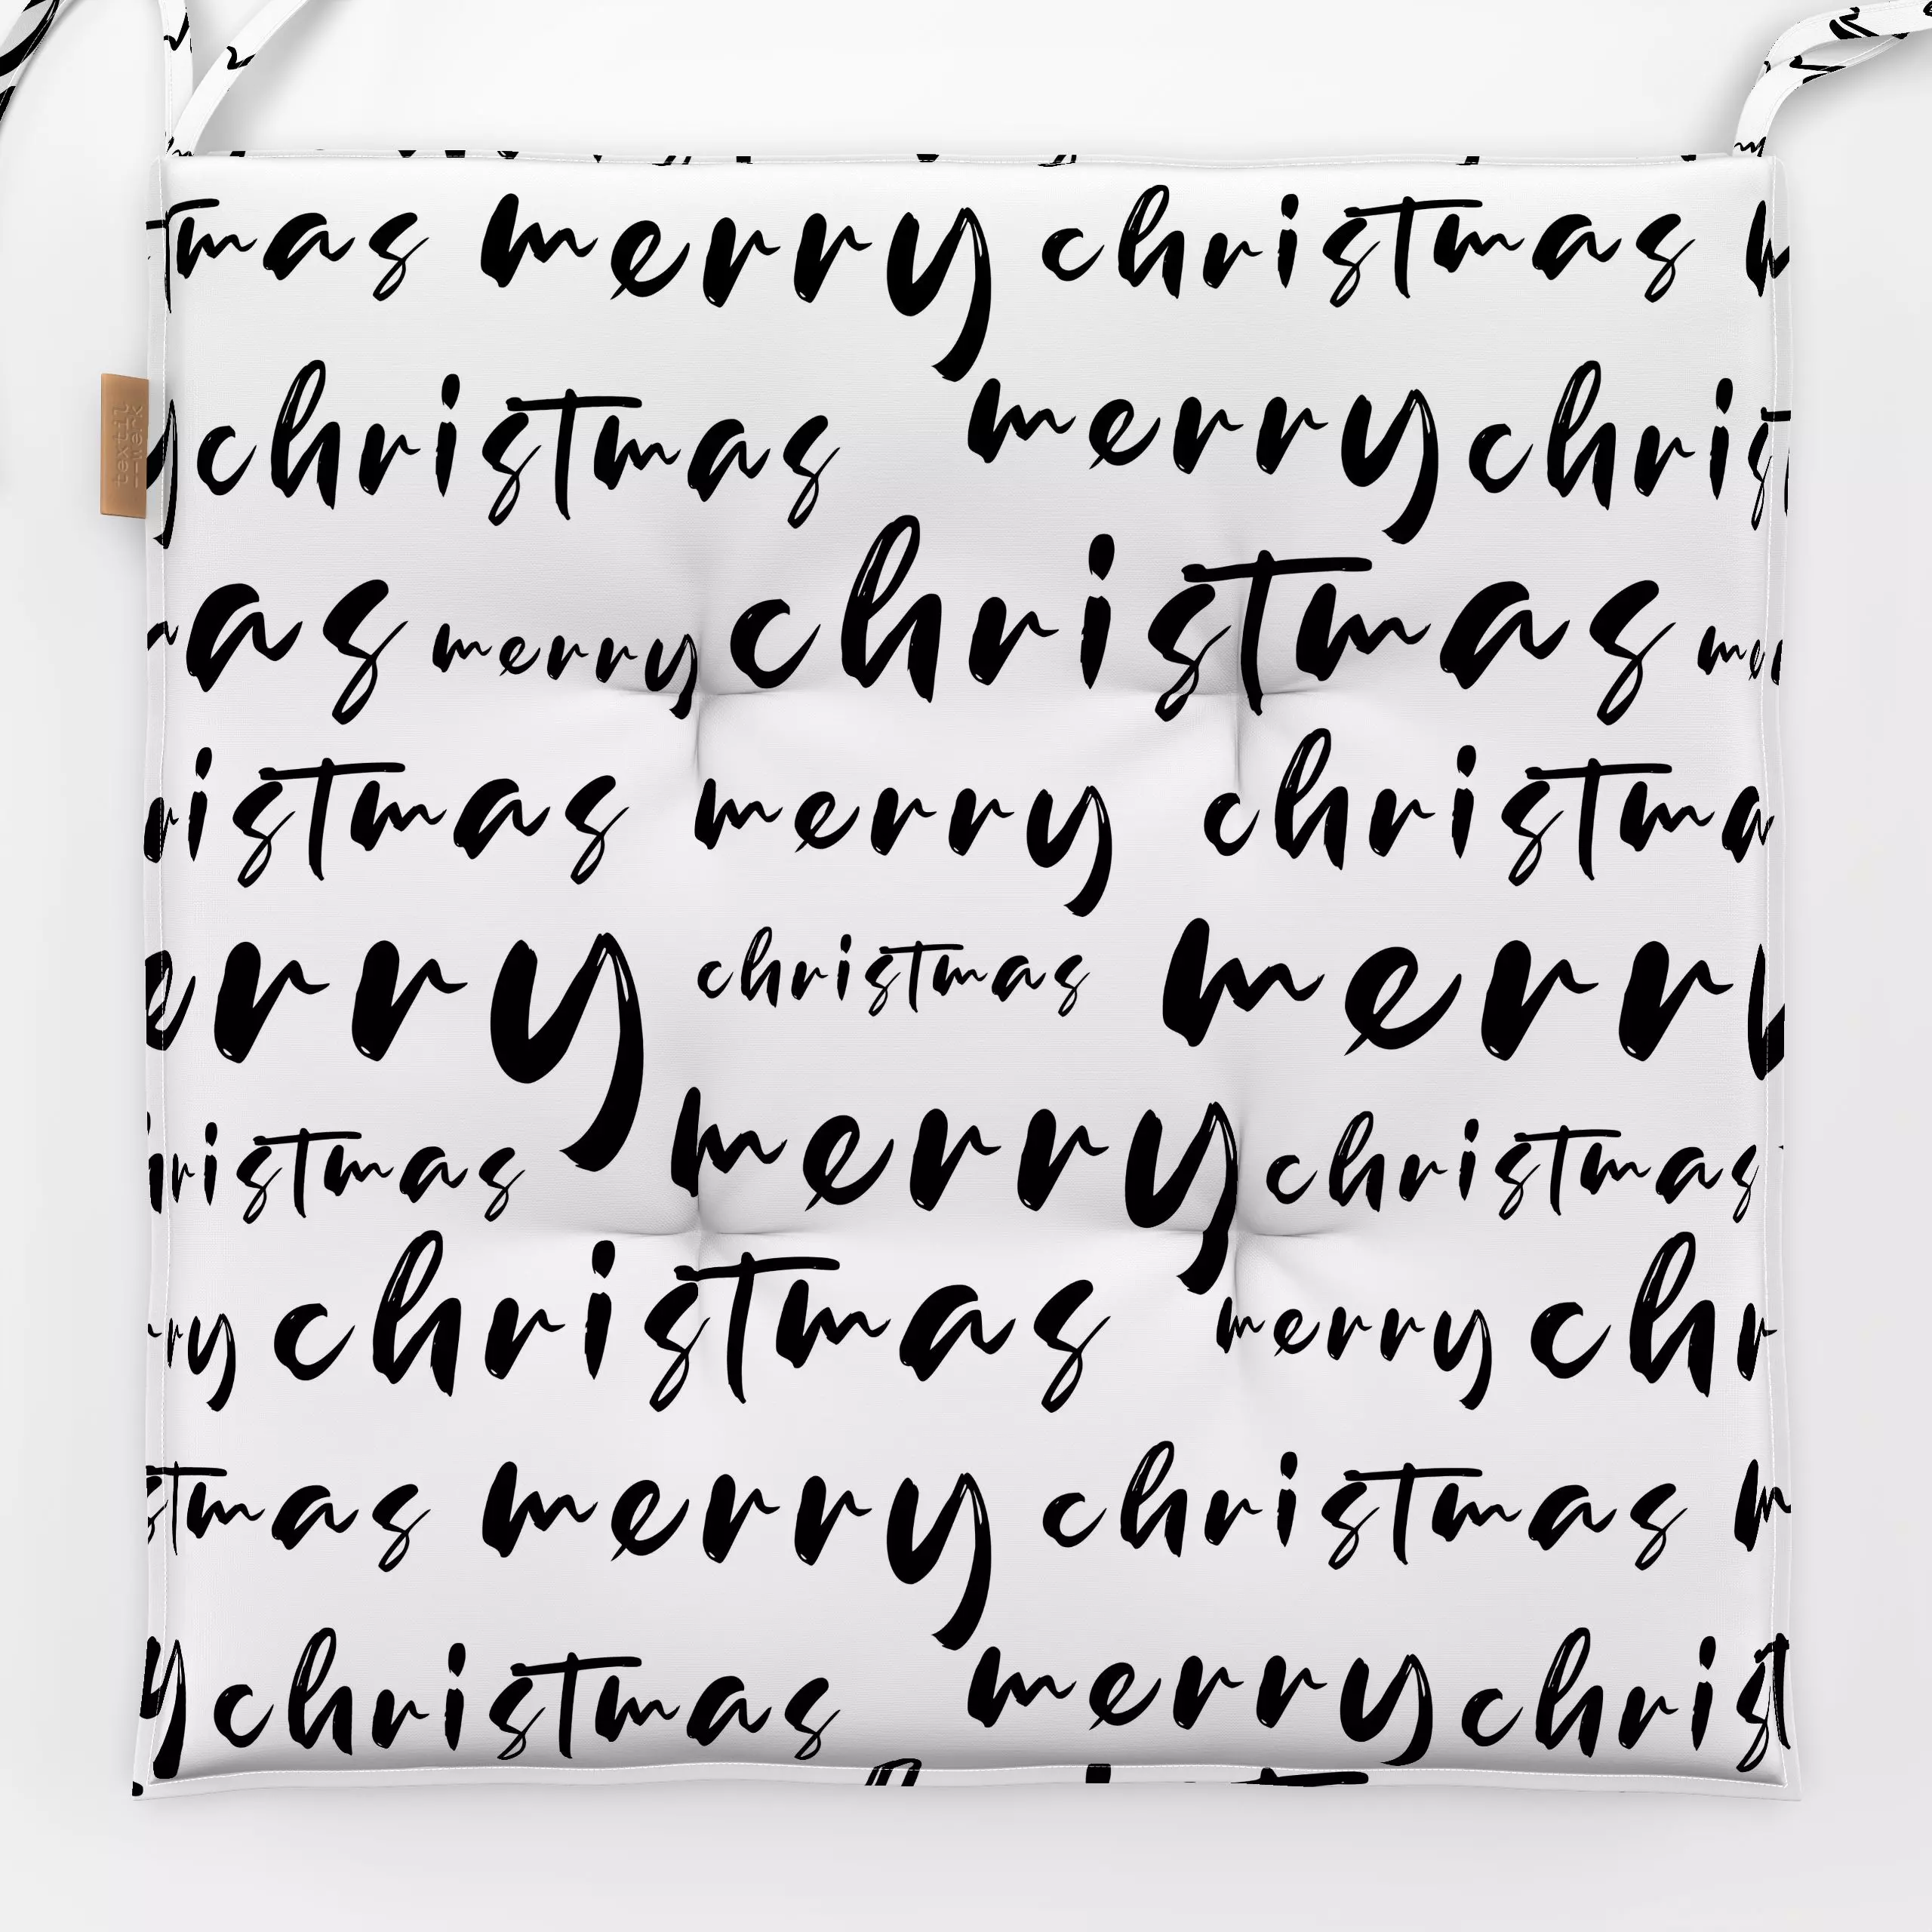 tmas merry christmas
y christmas merry christ
as merry christmas mer
ristmas merry christma
erry christmas merry
ristmas merry christmas
ry christmas merry chr
stmas merry christmas m
y christmas merry christ
textil
—werk